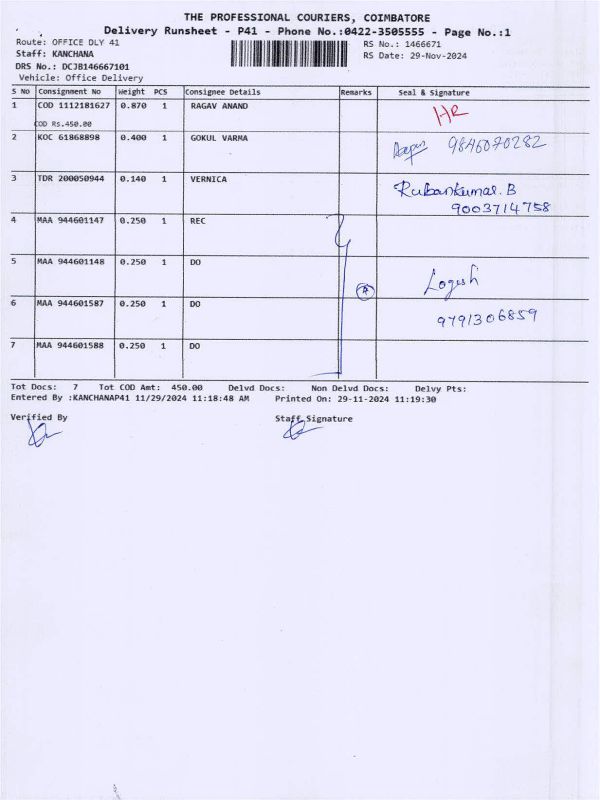 THE PROFESSIONAL COURIERS, COIMBATORE
Delivery Runsheet - P41 - Phone No.:0422-3505555 - Page No.:1
Route: OFFICE DLY 41 RS No.: 1466671
Staff: KANCHANA RS Date: 29-Nov-2024
DRS No.: DCJB146667101
Vehicle: Office Delivery
S No Consignment No Weight PCS Consignee Details Remarks Seal & Signature
1 COD 1112181627 0.870 1 RAGAV ANAND HR
COD Rs.450.00
2 KOC 61868898 0.400 1 GOKUL VARMA 9846070282
3 TDR 200050944 0.140 1 VERNICA Rubankumar. B
9003714758
4 MAA 944601147 0.250 1 REC
5 MAA 944601148 0.250 1 DO Logesh
6 MAA 944601587 0.250 1 DO 9791306859
7 MAA 944601588 0.250 1 DO
Tot Docs: 7 Tot COD Amt: 450.00 Delvd Docs: Non Delvd Docs: Delvy Pts:
Entered By :KANCHANAP41 11/29/2024 11:18:48 AM Printed On: 29-11-2024 11:19:30
Verified By Staff Signature